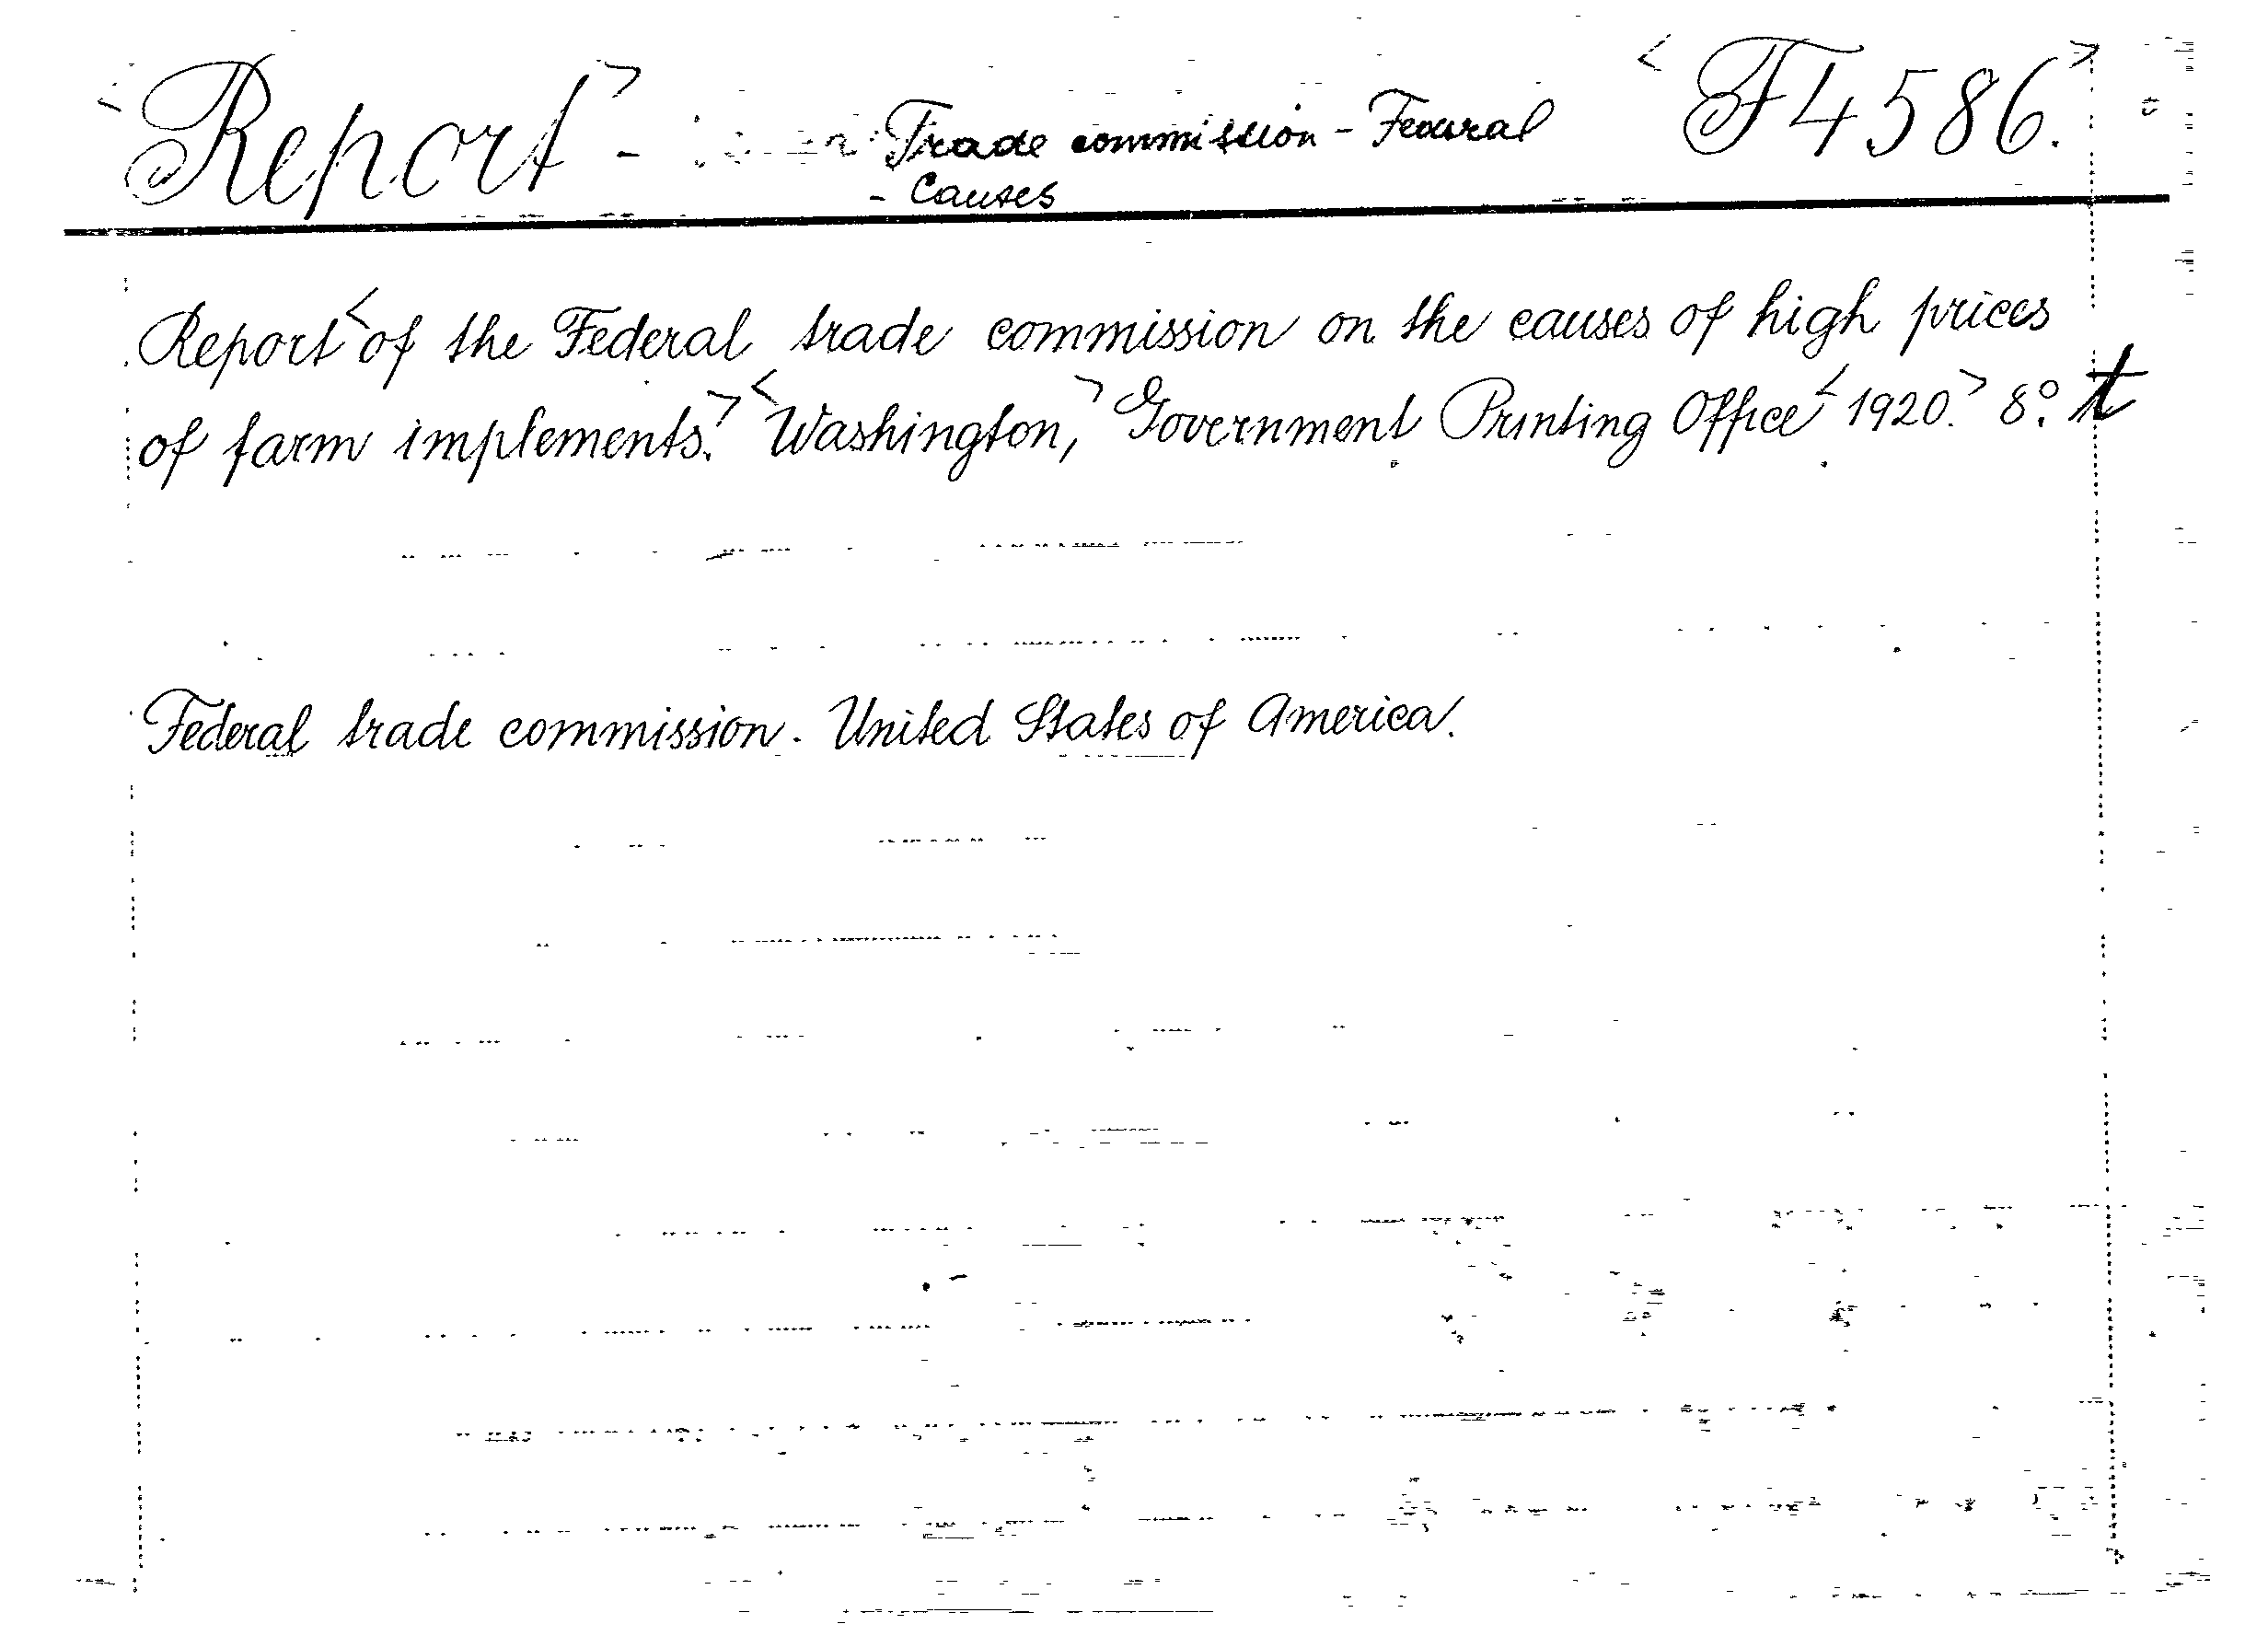 <Report> - Trade commission - Federal <F4586.>
- Causes
Report< of the Federal trade commission on the causes of high prices
of farm implements.> <Washington,> Government Printing Office< 1920.> 8º. t
Federal trade commission. United States of America.